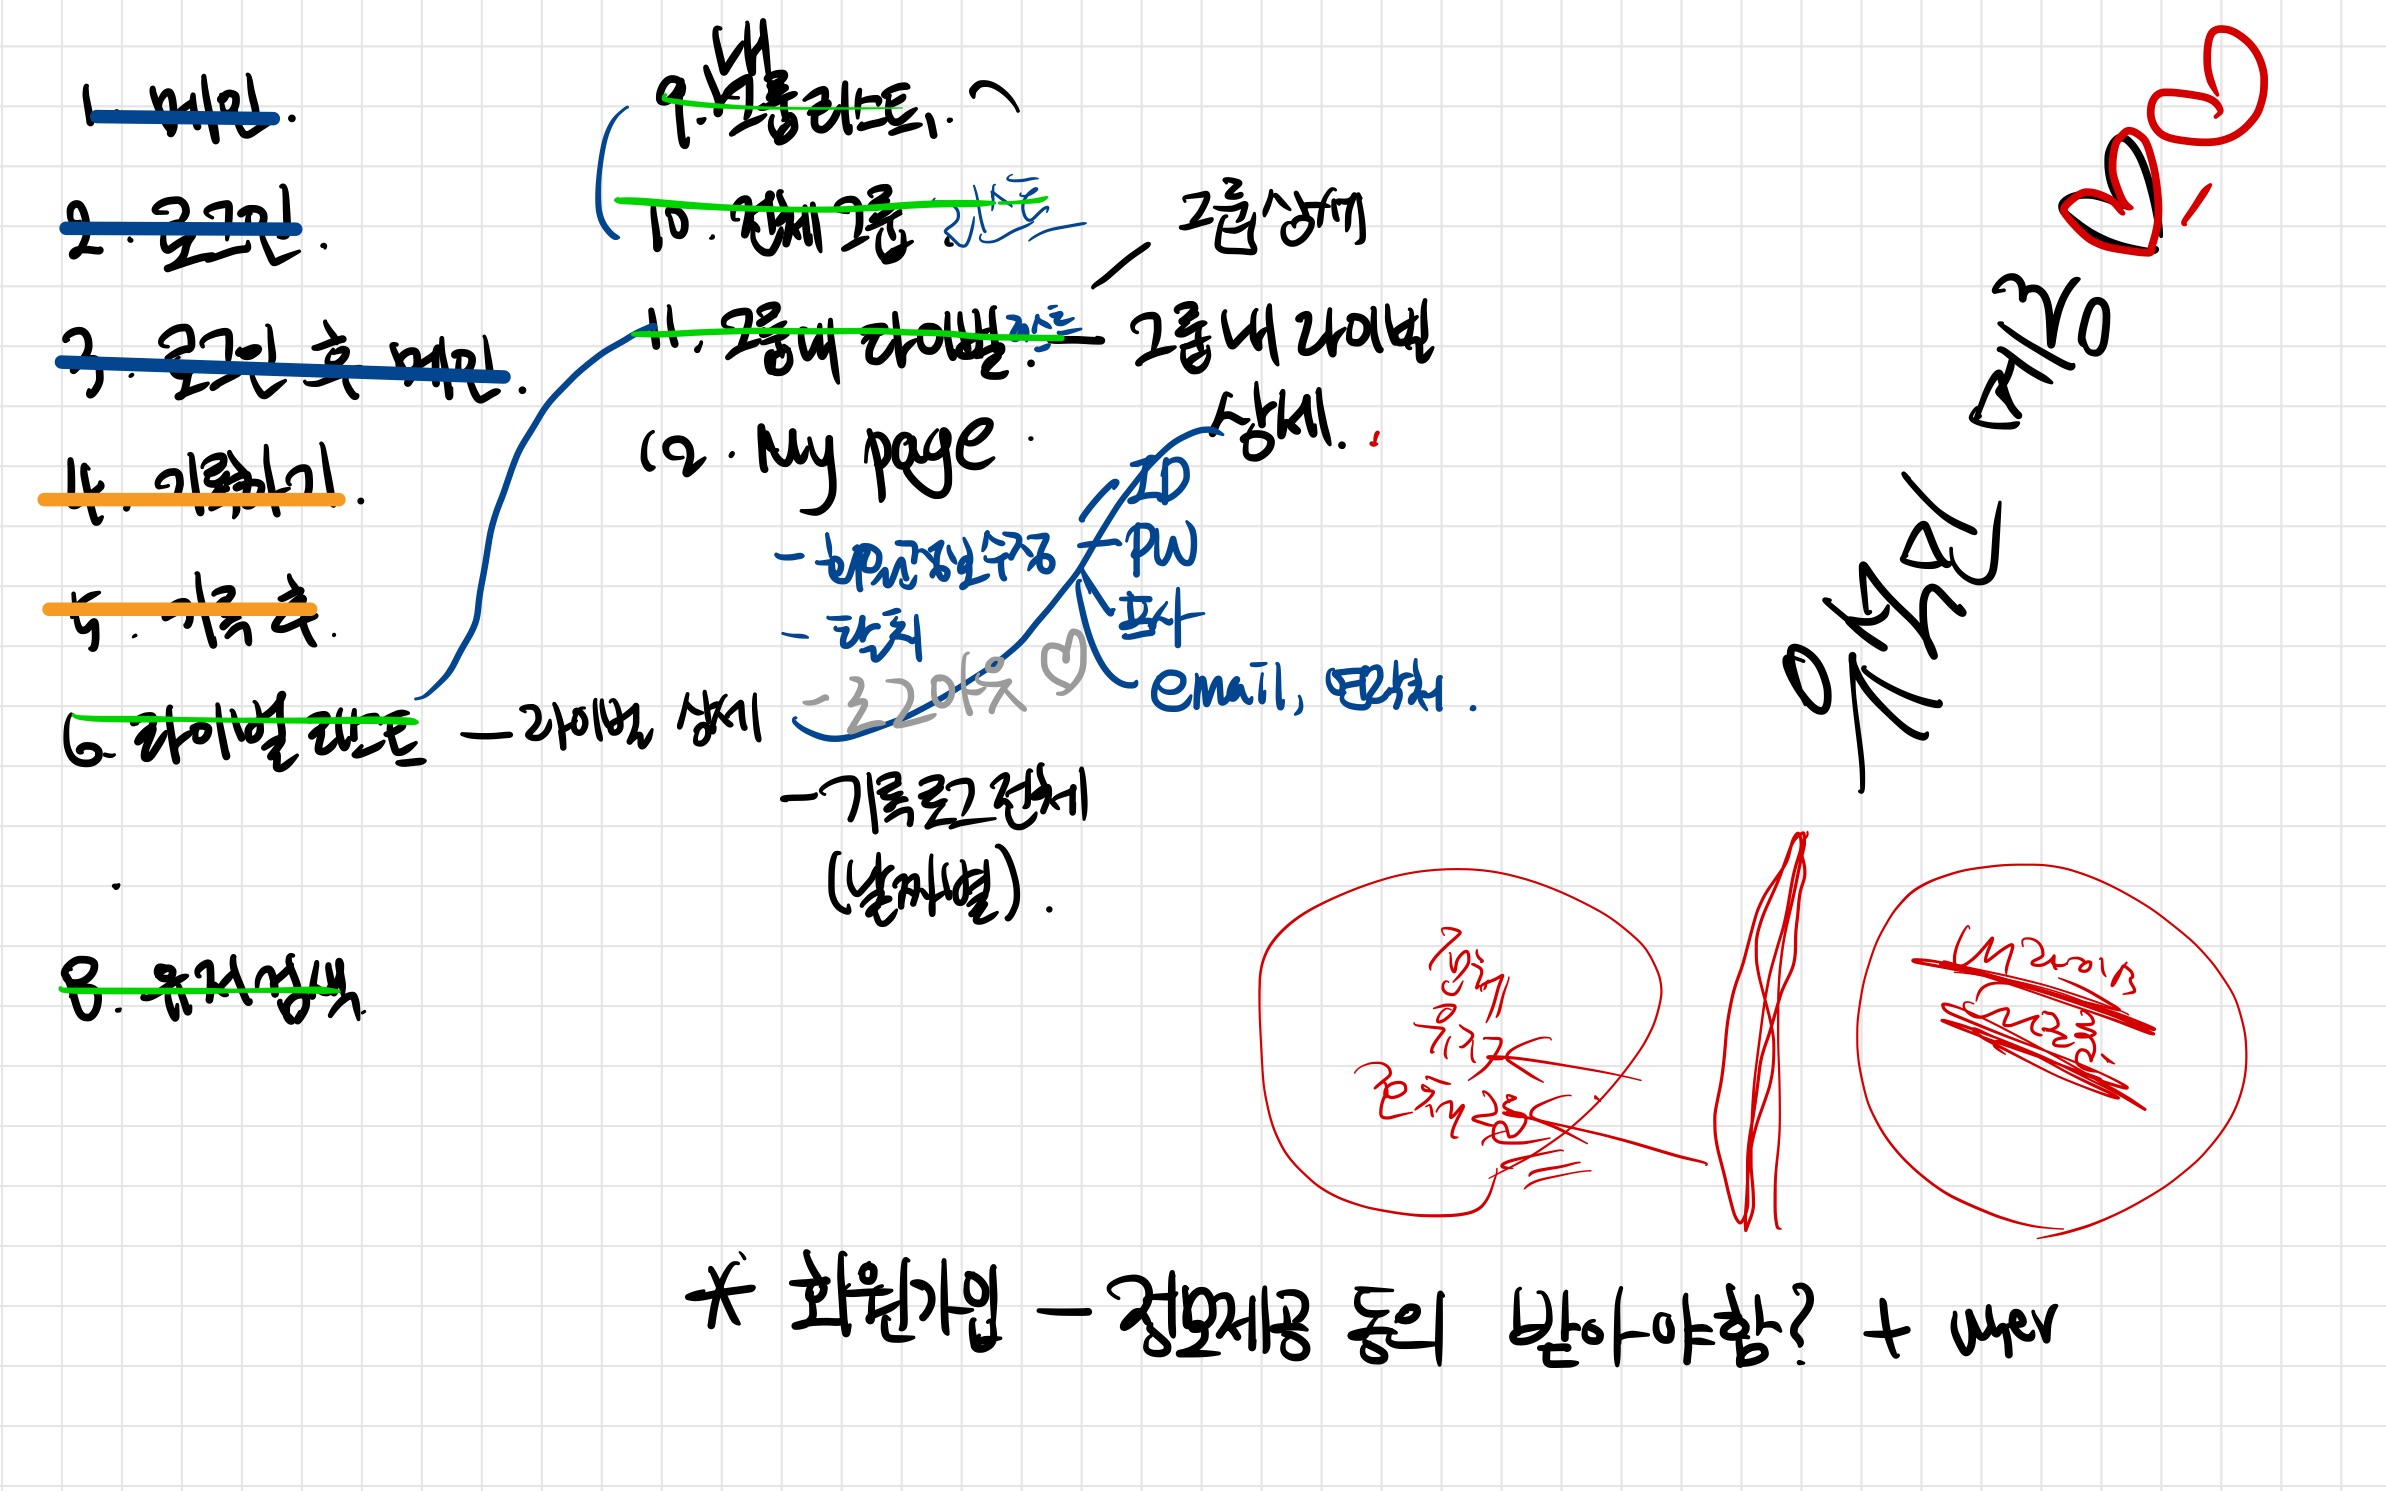 1. 메인.
2. 로그인.
3. 로그인 후 메인.
4. 기록하기.
5. 기록 후.
6. 라이벌 리스트 — 라이벌 상세
8. 유저검색.
내
9. 그룹리스트.
10. 전체 그룹 리스트
그룹상세
11. 그룹 내 라이벌 리스트 — 그룹 내 라이벌
상세.
12. My page.
- 회원정보수정
ID
PW
프사
email, 연락처.
- 탈퇴
- 로그아웃
- 기록로그 전체
(날짜별).
메롱
전체
유저
전체그룹
내 라이벌
내 그룹
* 회원가입 — 정보제공 동의 받아야함? + user